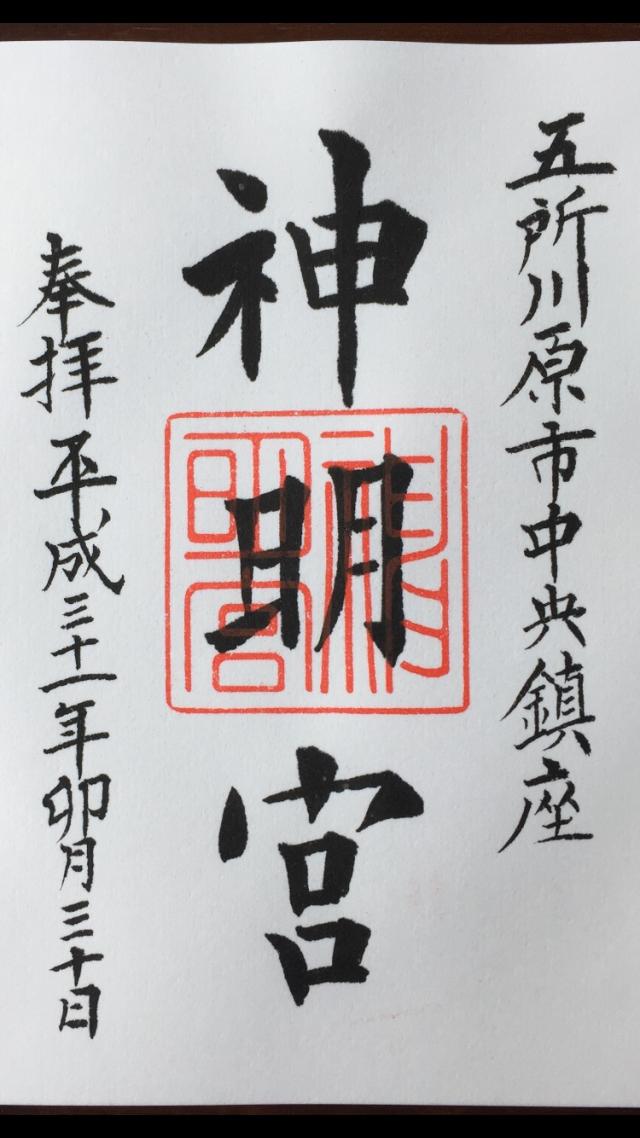 五所川原市中央鎮座
神明宮
奉拝平成三十一年卯月三十日